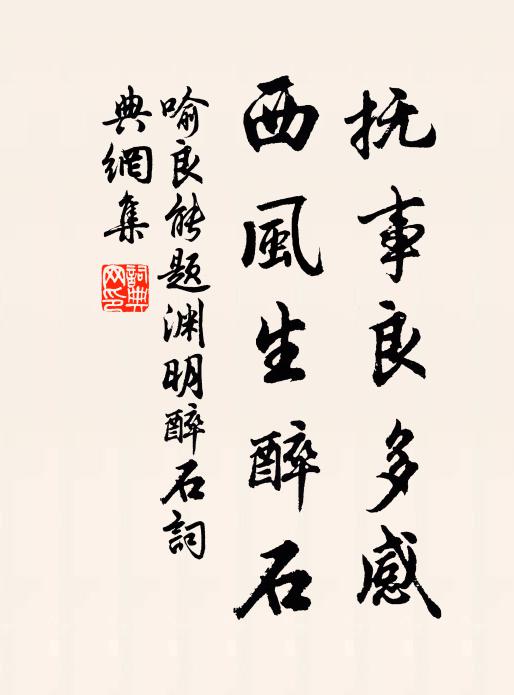 抚事良多感
西風生醉石
喻良能题渊明醉石詞
典網集
詞典
网印